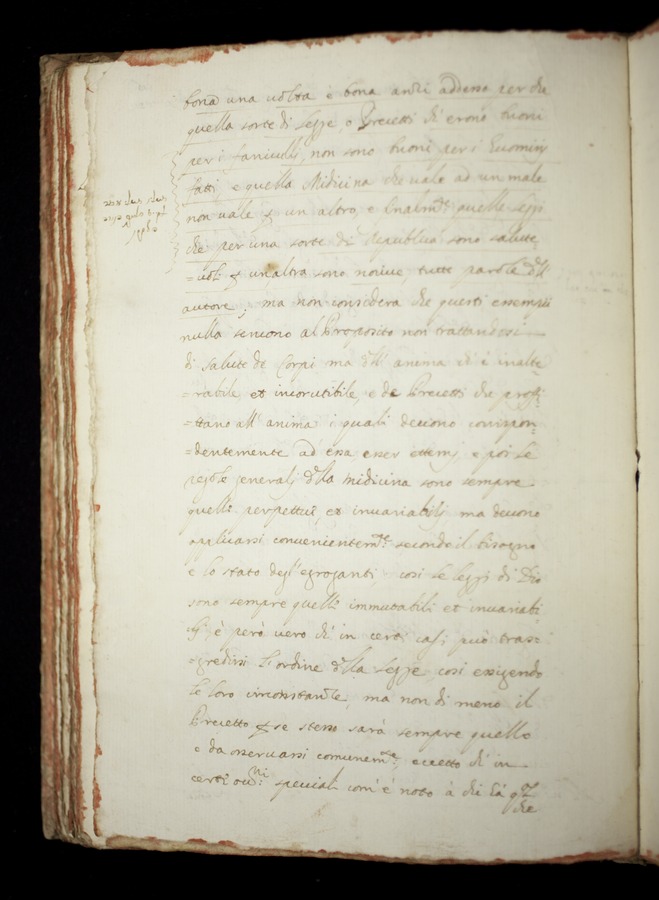 bona una volta è bona anzi adesso per che
quella sorte di legge, o Precetti ch'erono buoni
per i fanciulli, non sono buoni per i Huominj
fatti, e quella Midicina che vale ad un male
non vale p un altro, e finalm.te quelle leggi
che per una sorte di Republica sono salute
=voli p un altra sono nocive, tutte parole dll'
autore; ma non considera che questi essempii
nulla servono al Proposito non trattandosi
di salute de Corpi ma dll' anima ch' è inalte
=rabile et incorutibile, e de Precetti che profi=
=ttano all' anima i quali devono corrispon=
=dentemente ad essa esser etternj e poi le
regole generalj dlla midicina sono sempre
quelli perpettui, et invariabilj ma devono
applicarsi convenientem.te secondo il bisogno
e lo stato degl' egroganti, così le leggi di Dio
sono sempre quelli immutabili et invariabi
lj è però vero ch' in certi casj può tras=
=gredirsi l'ordine dlla legge così esigendo
le loro circonstanze, ma non di meno il
Precetto p se stesso sarà sempre quello
e da osservarsi comunem.te, eccetto ch' in
certi speciali com' è noto à chi hà
che